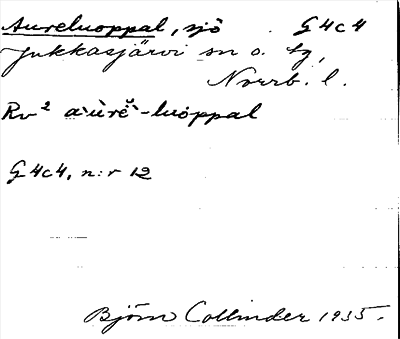 Aureluoppal, sjö G4c4
Jukkasjärvi sn o. tg,
Norrb. l.
Rv² a͕ùrĕ̀-luóppal
G4c4, n:r 12
Björn Collinder 1935.